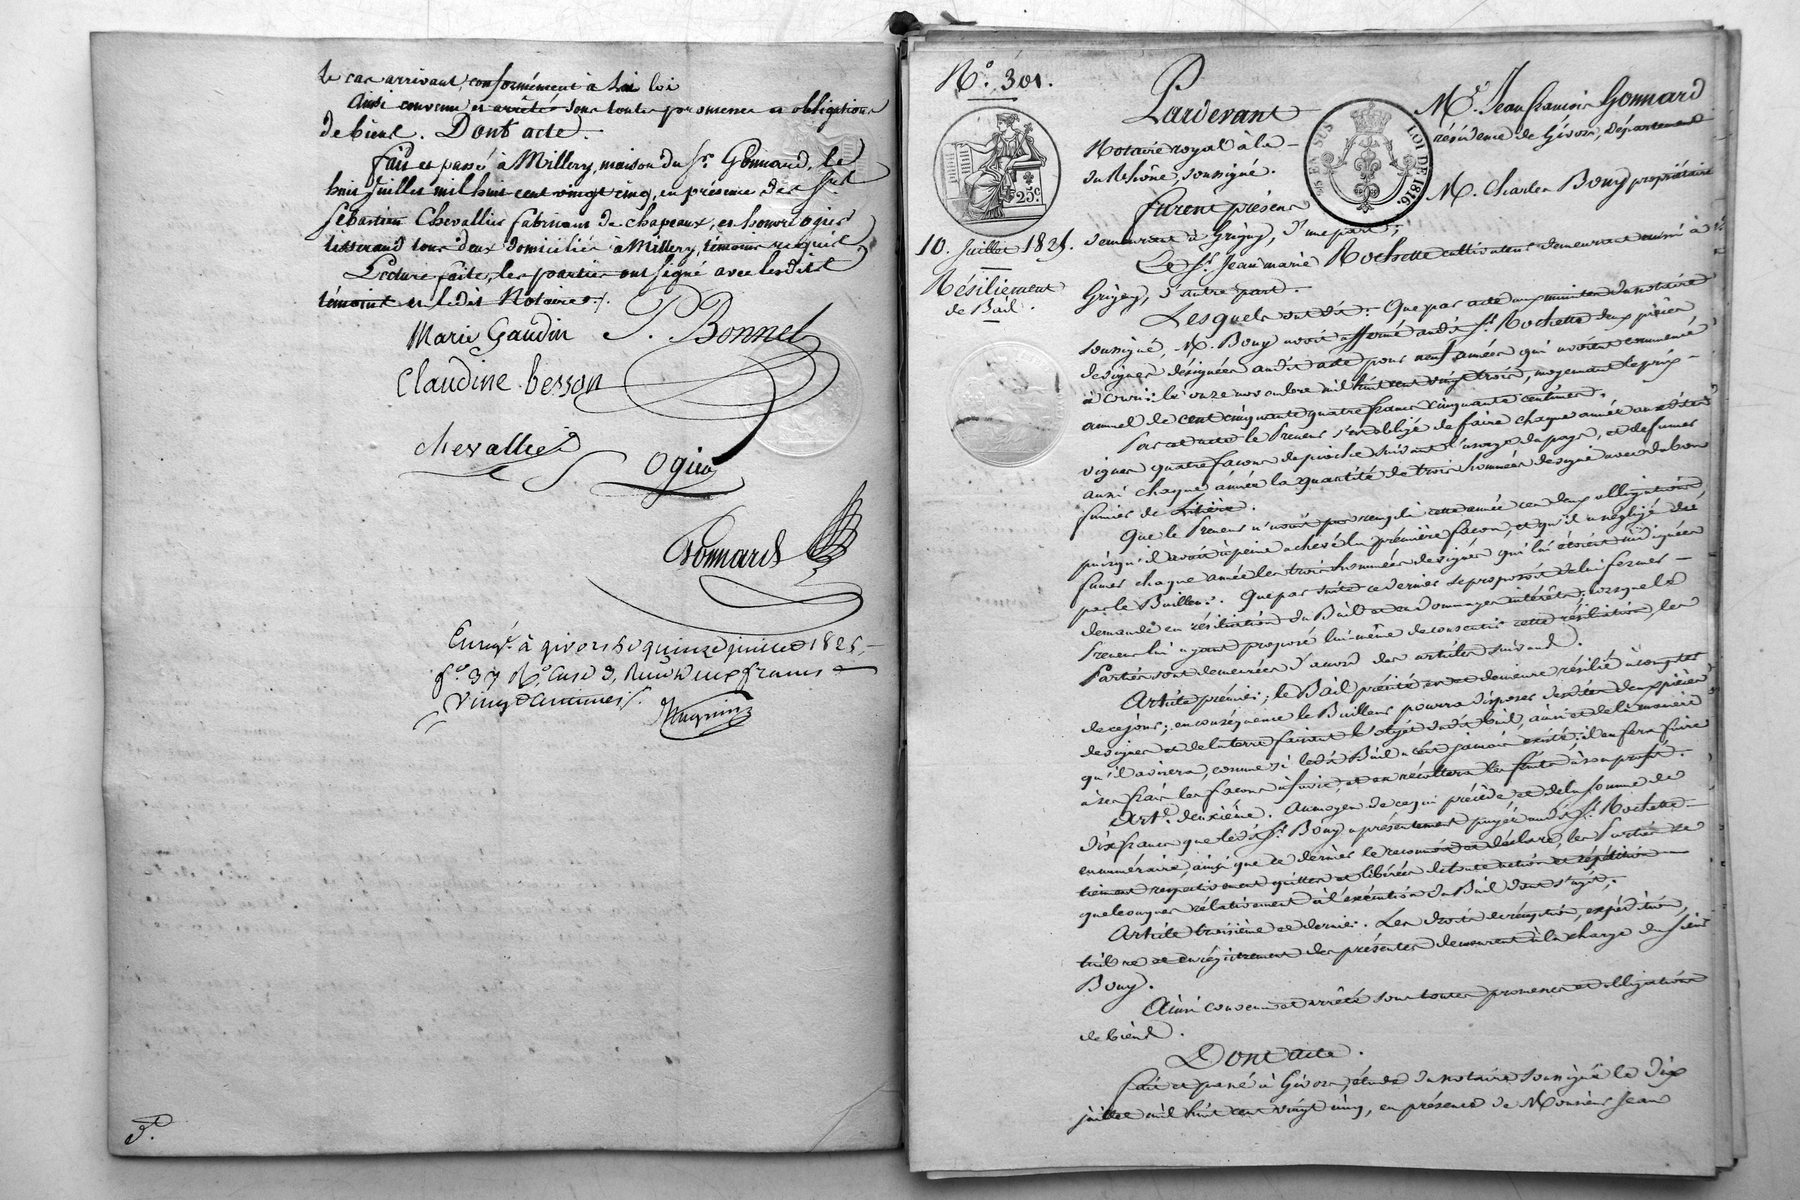 le cas arrivant, conformément à la loi
Ainsi convenu et arrêté sous toutes promesses et obligations
de biens. Dont acte.
fait et passé à Millery, maison du Sr. Gonnard, le
huit juillet mil huit cent vingt cinq, en présence des Srs
Sébastien Chevallier fabricant de chapeaux, et honoré ogier
tisserand tous deux domiciliés à Millery, témoins requis
Lecture faite, les parties ont signé avec lesdits
témoins et ledit Notaire.
Marie Gaudin P. Bonnel
Claudine besson
chevallier
Ogier
Gonnard
Enregé. à givors le quinze juillet 1825,
fo. 37 Ro. Case 3, Reçu deux francs
vingt centimes.
3.
No. 301.
Pardevant Me. Jean François Gonnard
Notaire royal à la résidence de Givors, Département
du Rhône, soussigné.
25c.
EN SUS
LOI DE 1816.
furent présens M. Charles Bouy propriétaire
10. Juillet 1825.
Résiliement
de Bail.
demeurant à Grigny, d'une part;
Et Sr. Jean marie Rochette cultivateur demeurant aussi à
Grigny, d'autre part.
Lesquels ont dit: Que par acte aux minutes du notaire
soussigné, M. Bouy avoit affermé audit Sr. Rochette deux pièces
de vignes désignées audit acte pour neuf années qui avoient commencé
à courir le onze novembre mil huit cent vingt trois, moyennant le prix
annuel de cent cinquante quatre francs cinquante centimes.
Par cet acte le Preneur s'est obligé de faire chaque année auxdites
vignes quatre façons de pioche suivant l'usage du pays, et de fumer
aussi chaque année la quantité de trois hommées de vigne avec du bon
fumier de litière.
Que le Preneur n'avoit pas rempli cette année ces deux obligations
puisqu'il avoit à peine achevé la première façon, et qu'il a négligé de
fumer chaque année les trois hommées de vignes qui lui étoient indiquées
par le Bailleur. Que par suite ce dernier se proposoit de lui former
demande en résiliation du Bail et en dommages intérêts, lorsque le
Preneur lui ayant proposé lui même de consentir cette résiliation, les
Parties sont demeurées d'accord des articles suivans.
Article premier; le Bail précité est et demeure résilié à compter
de ce jour; en conséquence le Bailleur pourra disposer desdites deux pièces
de vignes et de la terre faisant l'objet dudit bail, ainsi et de la manière
qu'il avisera, comme si ledit Bail n'eut jamais existé; il en fera faire
à ses frais les façons à suivre, et en récoltera les fruits à son profit.
Art. deuxième. Au moyen de ce qui précède, et de la somme de
dix francs que ledit Sr. Bouy a présentement payée audit Sr. Rochette
en numéraire, ainsi que ce dernier le reconnoit et déclare, les Parties se
tiennent respectivement quittes et libérées de toute action et répétition
quelconques relativement à l'exécution du Bail dont s'agit.
Article troisième et dernier. Les droits de réception, expédition,
timbre et enregistrement des présentes demeurent à la charge du sieur
Bouy.
Ainsi convenu et arrêté sous toutes promesses et obligations
de biens.
Dont acte.
fait et passé à Givors, étude du notaire soussigné le dix
juillet mil huit cent vingt cinq, en présence de Monsieur Jean